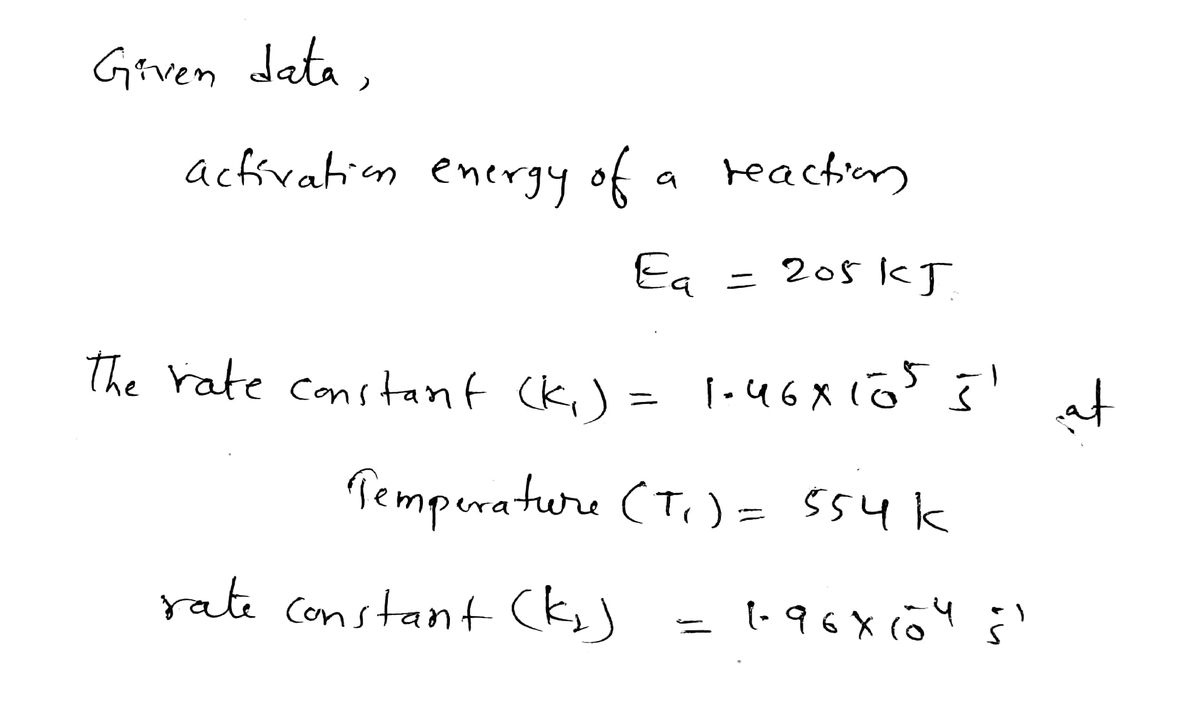 Given data,
activation energy of a reaction
Ea = 205 kJ
The rate constant (k₁) = 1.46 x 10⁻⁵ s⁻¹ at
Temperature (T₁) = 554 k
rate constant (k₂) = 1.96 x 10⁻⁴ s⁻¹